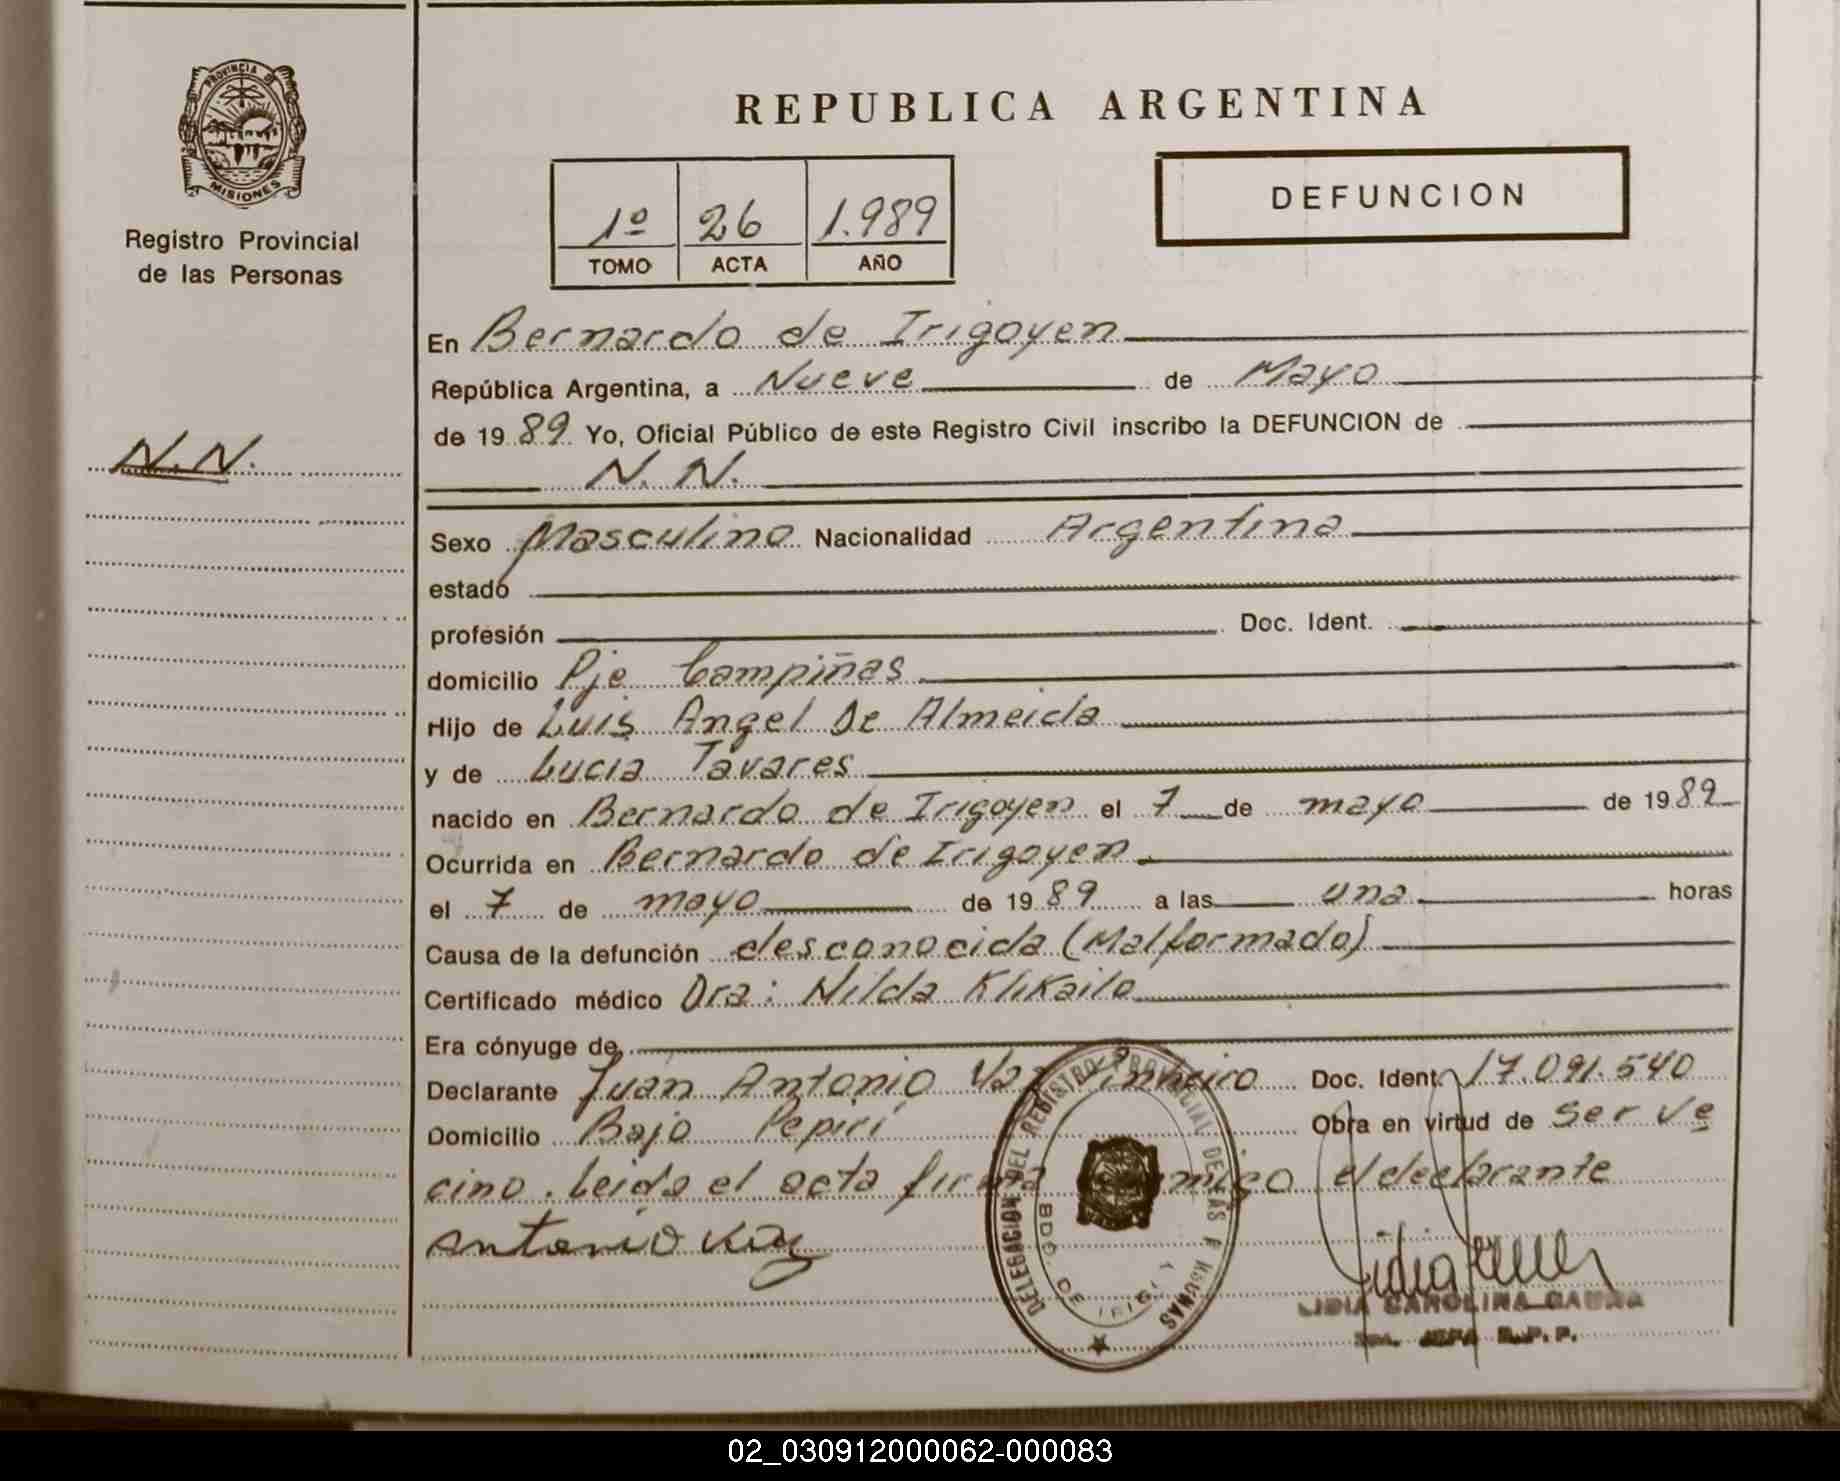 PROVINCIA DE
MISIONES
Registro Provincial
de las Personas
N.N.
REPUBLICA ARGENTINA
1º 26 1.989
TOMO ACTA AÑO
DEFUNCION
En Bernardo de Irigoyen
República Argentina, a Nueve de Mayo
de 19 89 Yo, Oficial Público de este Registro Civil inscribo la DEFUNCION de
N. N.
Sexo Masculino Nacionalidad Argentina
estado
profesión Doc. Ident.
domicilio Pje Campiñas
Hijo de Luis Angel De Almeida
y de Lucia Tavares
nacido en Bernardo de Irigoyen el 7 de mayo de 19 89
Ocurrida en Bernardo de Irigoyen
el 7 de mayo de 19 89 a las una horas
Causa de la defunción desconocida (Malformado)
Certificado médico Dra: Nilda Klikailo
Era cónyuge de
Declarante Juan Antonio Vaz Pinheiro Doc. Ident. 17.091.540
Domicilio Bajo Pepirí Obra en virtud de ser ve
cino. Leida el acta firma conmigo el declarante
Antonio Vaz
DELEGACION DEL REGISTRO PROVINCIAL DE LAS PERSONAS
BDO. DE IRIGOYEN
LIDIA CAROLINA
R.P.P.
02_030912000062-000083